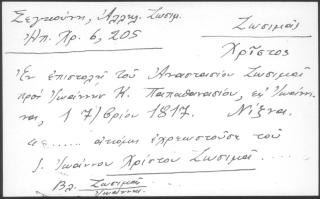 Σεγκούνη, Αλληλ. Ζωσιμ.
Ηπ. Χρ. 6, 205
Ζωσιμάς
Χρῆστος
Ἐν ἐπιστολῇ τοῦ Ἀναστασίου Ζωσιμᾶ
πρὸς Ἰωάννην Η. Παπαθανασίου, εἰς Ἰωάννι-
να, 1 7/βρίου 1817. Νίζνα.
«ς..... αὐτόμις ἐχρεωστοῦσε τοῦ
Ἰ. Ἰωάννου Χρίστου Ζωσιμᾶ . . . .
Βλ. Ζωσιμᾶ
Ἰωάνναι.